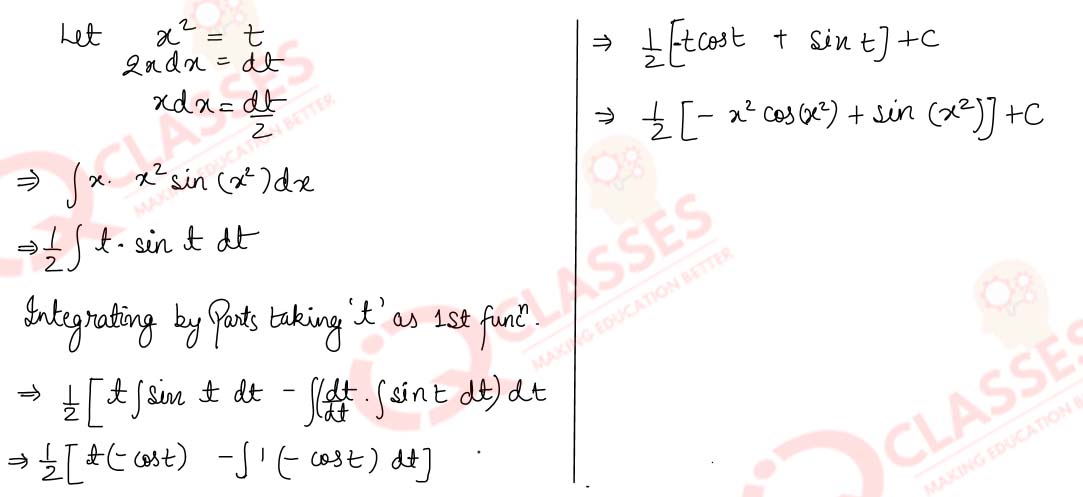 Let x² = t
2x dx = dt
x dx = dt/2
⇒ ∫ x. x² sin (x²) dx
⇒ 1/2 ∫ t. sin t dt
Integrating by Parts taking 't' as 1st funcⁿ.
⇒ 1/2 [ t ∫ sin t dt - ∫(dt/dt . ∫ sin t dt) dt
⇒ 1/2 [ t (- cos t) - ∫ 1 (- cos t) dt ]
⇒ 1/2 [-t cos t + sin t] + C
⇒ 1/2 [- x² cos (x²) + sin (x²)] + C
CLASSES
MAKING EDUCATION BETTER
CLASSES
MAKING EDUCATION BETTER
CLASSES
MAKING EDUCATION